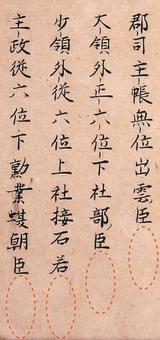 郡司主帳無位出雲臣
大領外正六位下社部臣
少領外従六位上社接石君
主政従六位下勲業蝮朝臣